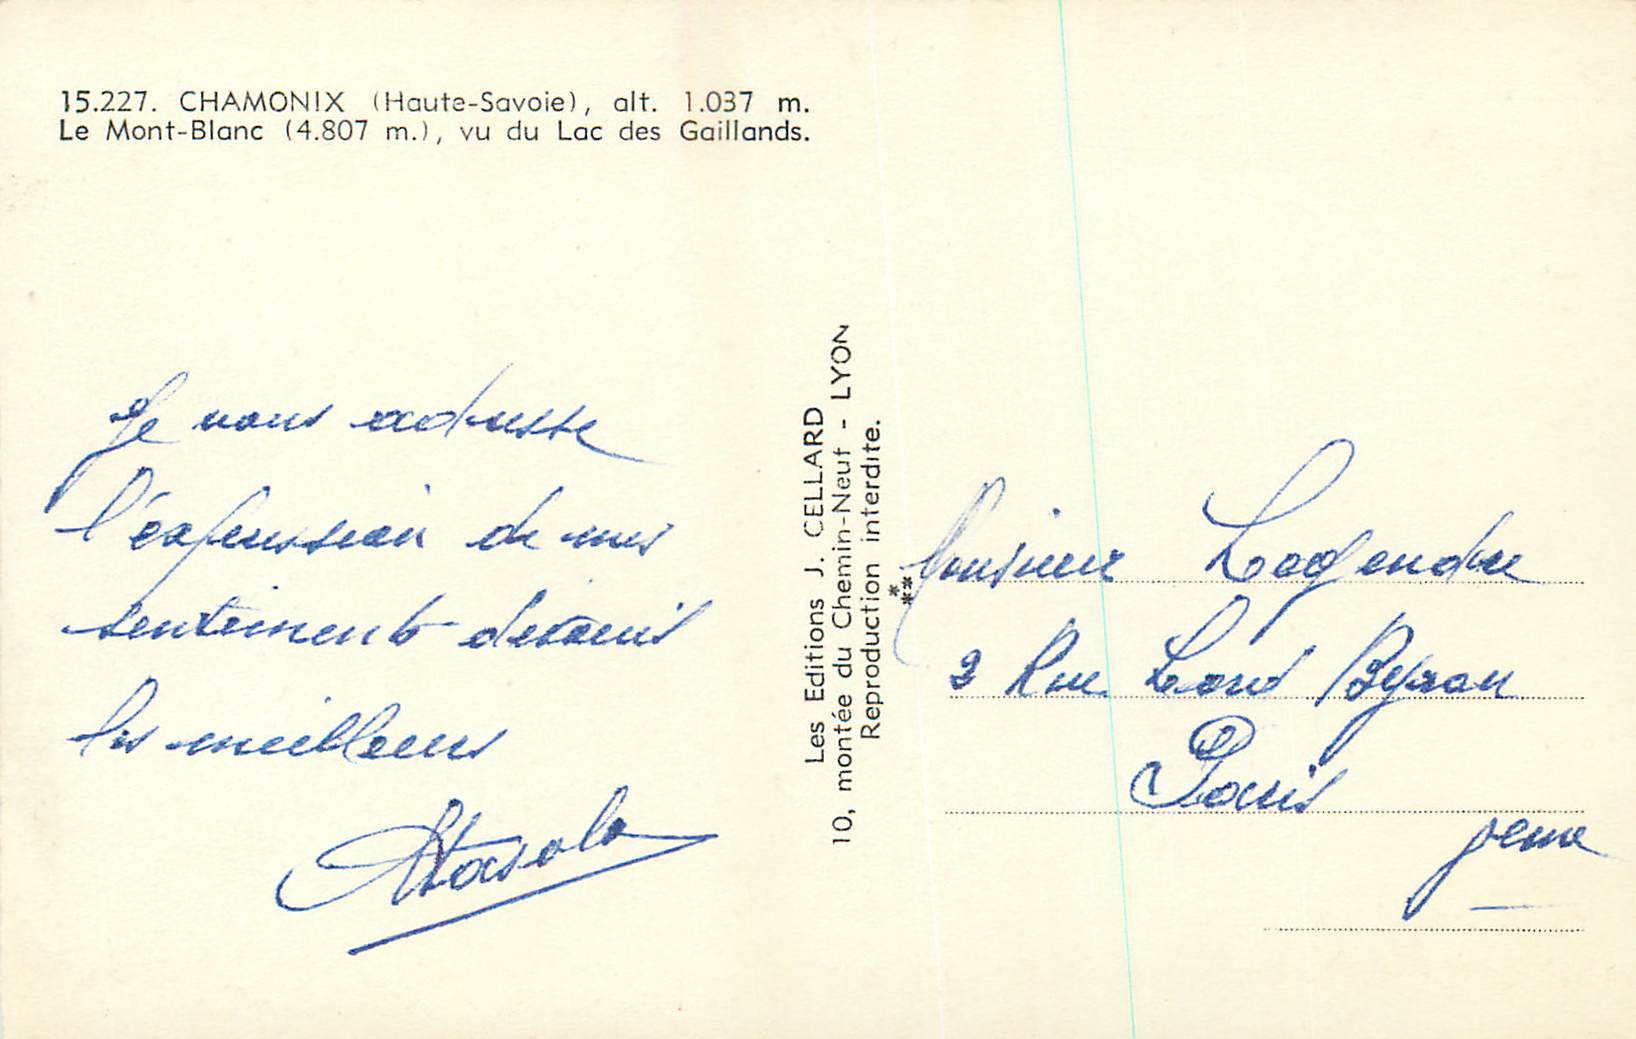 15.227. CHAMONIX (Haute-Savoie), alt. 1.037 m.
Le Mont-Blanc (4.807 m.), vu du Lac des Gaillands.
Je vous adresse
l'expression de mes
sentiments devoués
les meilleurs
Les Editions J. CELLARD
10, montée du Chemin-Neuf - LYON
Reproduction interdite.
Monsieur Legendre
2 Rue Lord Byron
Paris